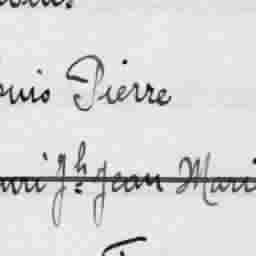 ouis Pierre
enri Jh Jean Mari